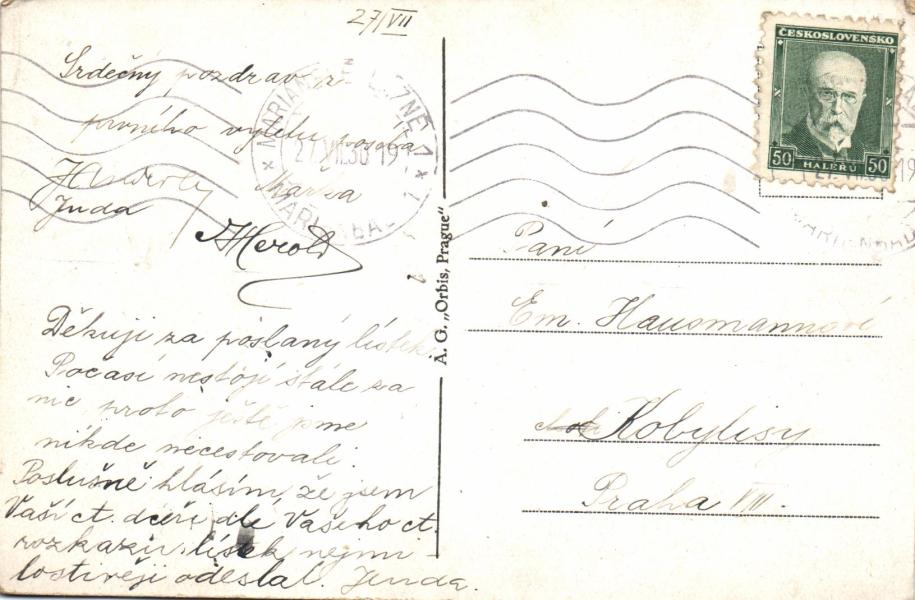 27/VII
Srdečný pozdrav z
prvního výletu posílá
Jenda
Herold
Děkuji za poslaný lístek.
Počasí nestojí stále za
nic proto ještě jsme
nikde necestovali.
Poslušně hlásím, že jsem
Vaší ct. dceři dle Vašeho ct.
rozkazu lístek nejmi-
lostivěji odeslal. Jenda.
MARIÁNSKÉ LÁZNĚ 1
27.VII.30 19
MARIENBAD
A. G. „Orbis, Prague"
ČESKOSLOVENSKO
50 HALÉŘŮ 50
Paní
Em. Hausmannové
Kobylisy
Praha VIII.